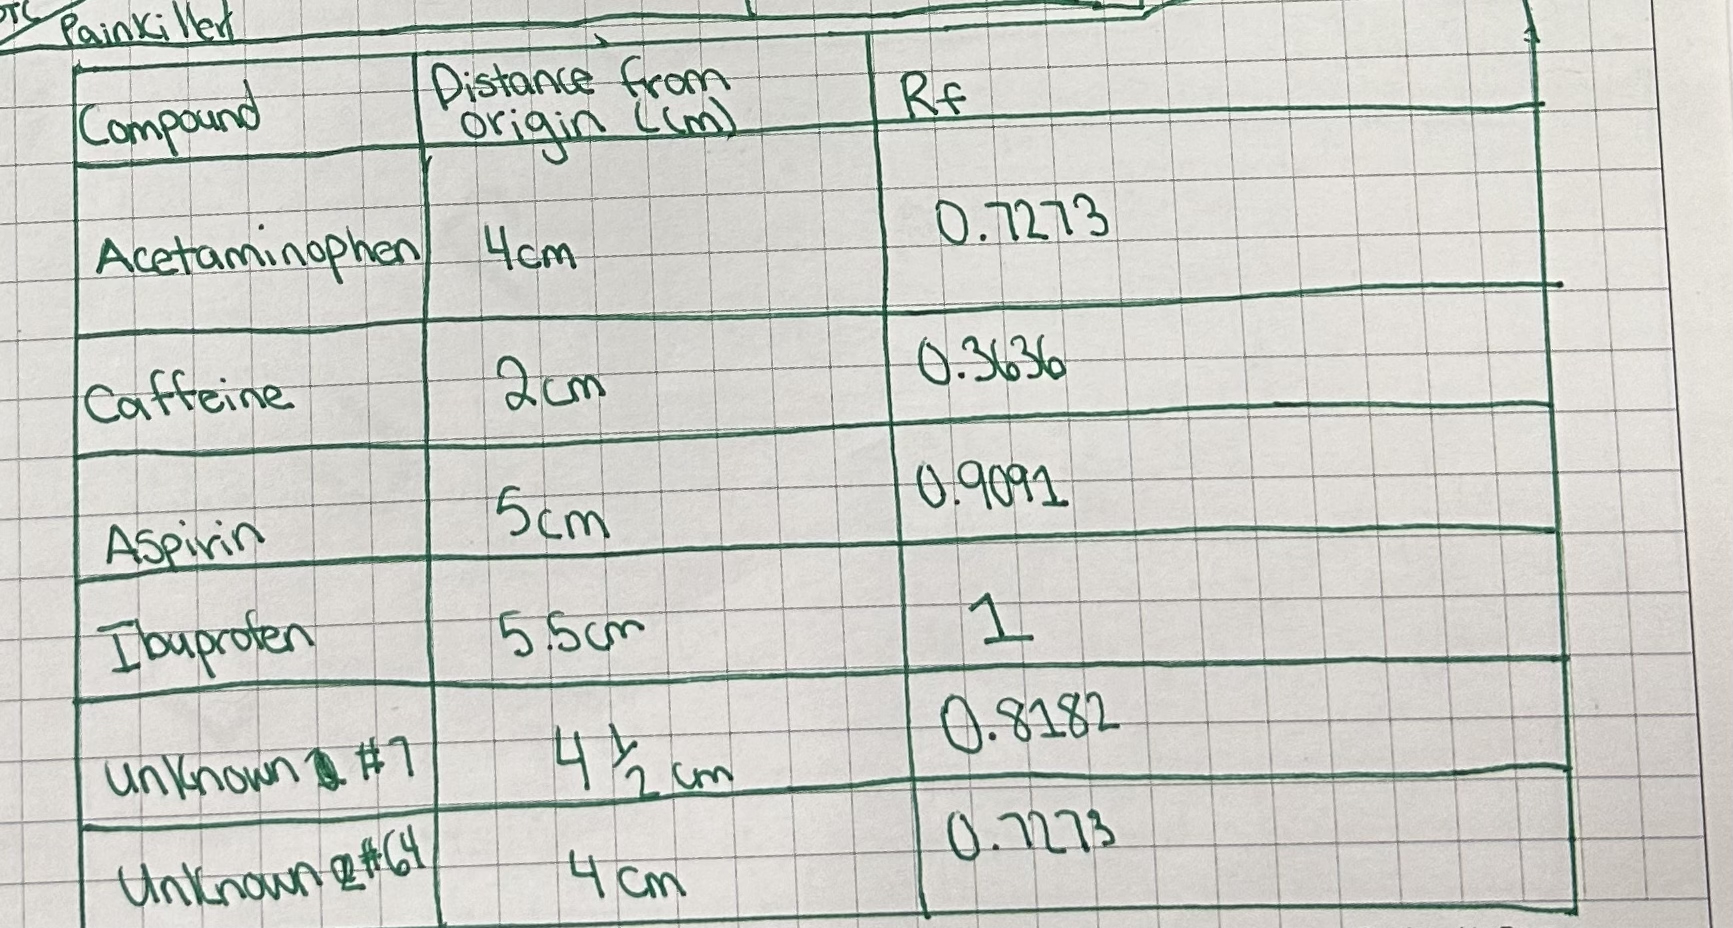 OTC Painkiller
Compound
Distance from
origin (cm)
Rf
Acetaminophen 4cm 0.7273
Caffeine 2cm 0.3636
Aspirin 5cm 0.9091
Ibuprofen 5.5cm 1
Unknown #7 4 1/2 cm 0.8182
Unknown 2 #64 4 cm 0.7273